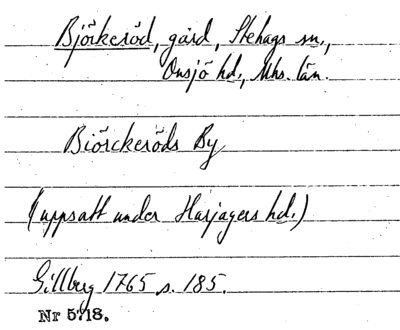 Björkeröd, gård, Stehags sn.,
Onsjö hd., Mhs. län.
Biörckeröds By
(uppsatt under Harjagers hd.)
Gillberg 1765 s. 185.
Nr 5:18.